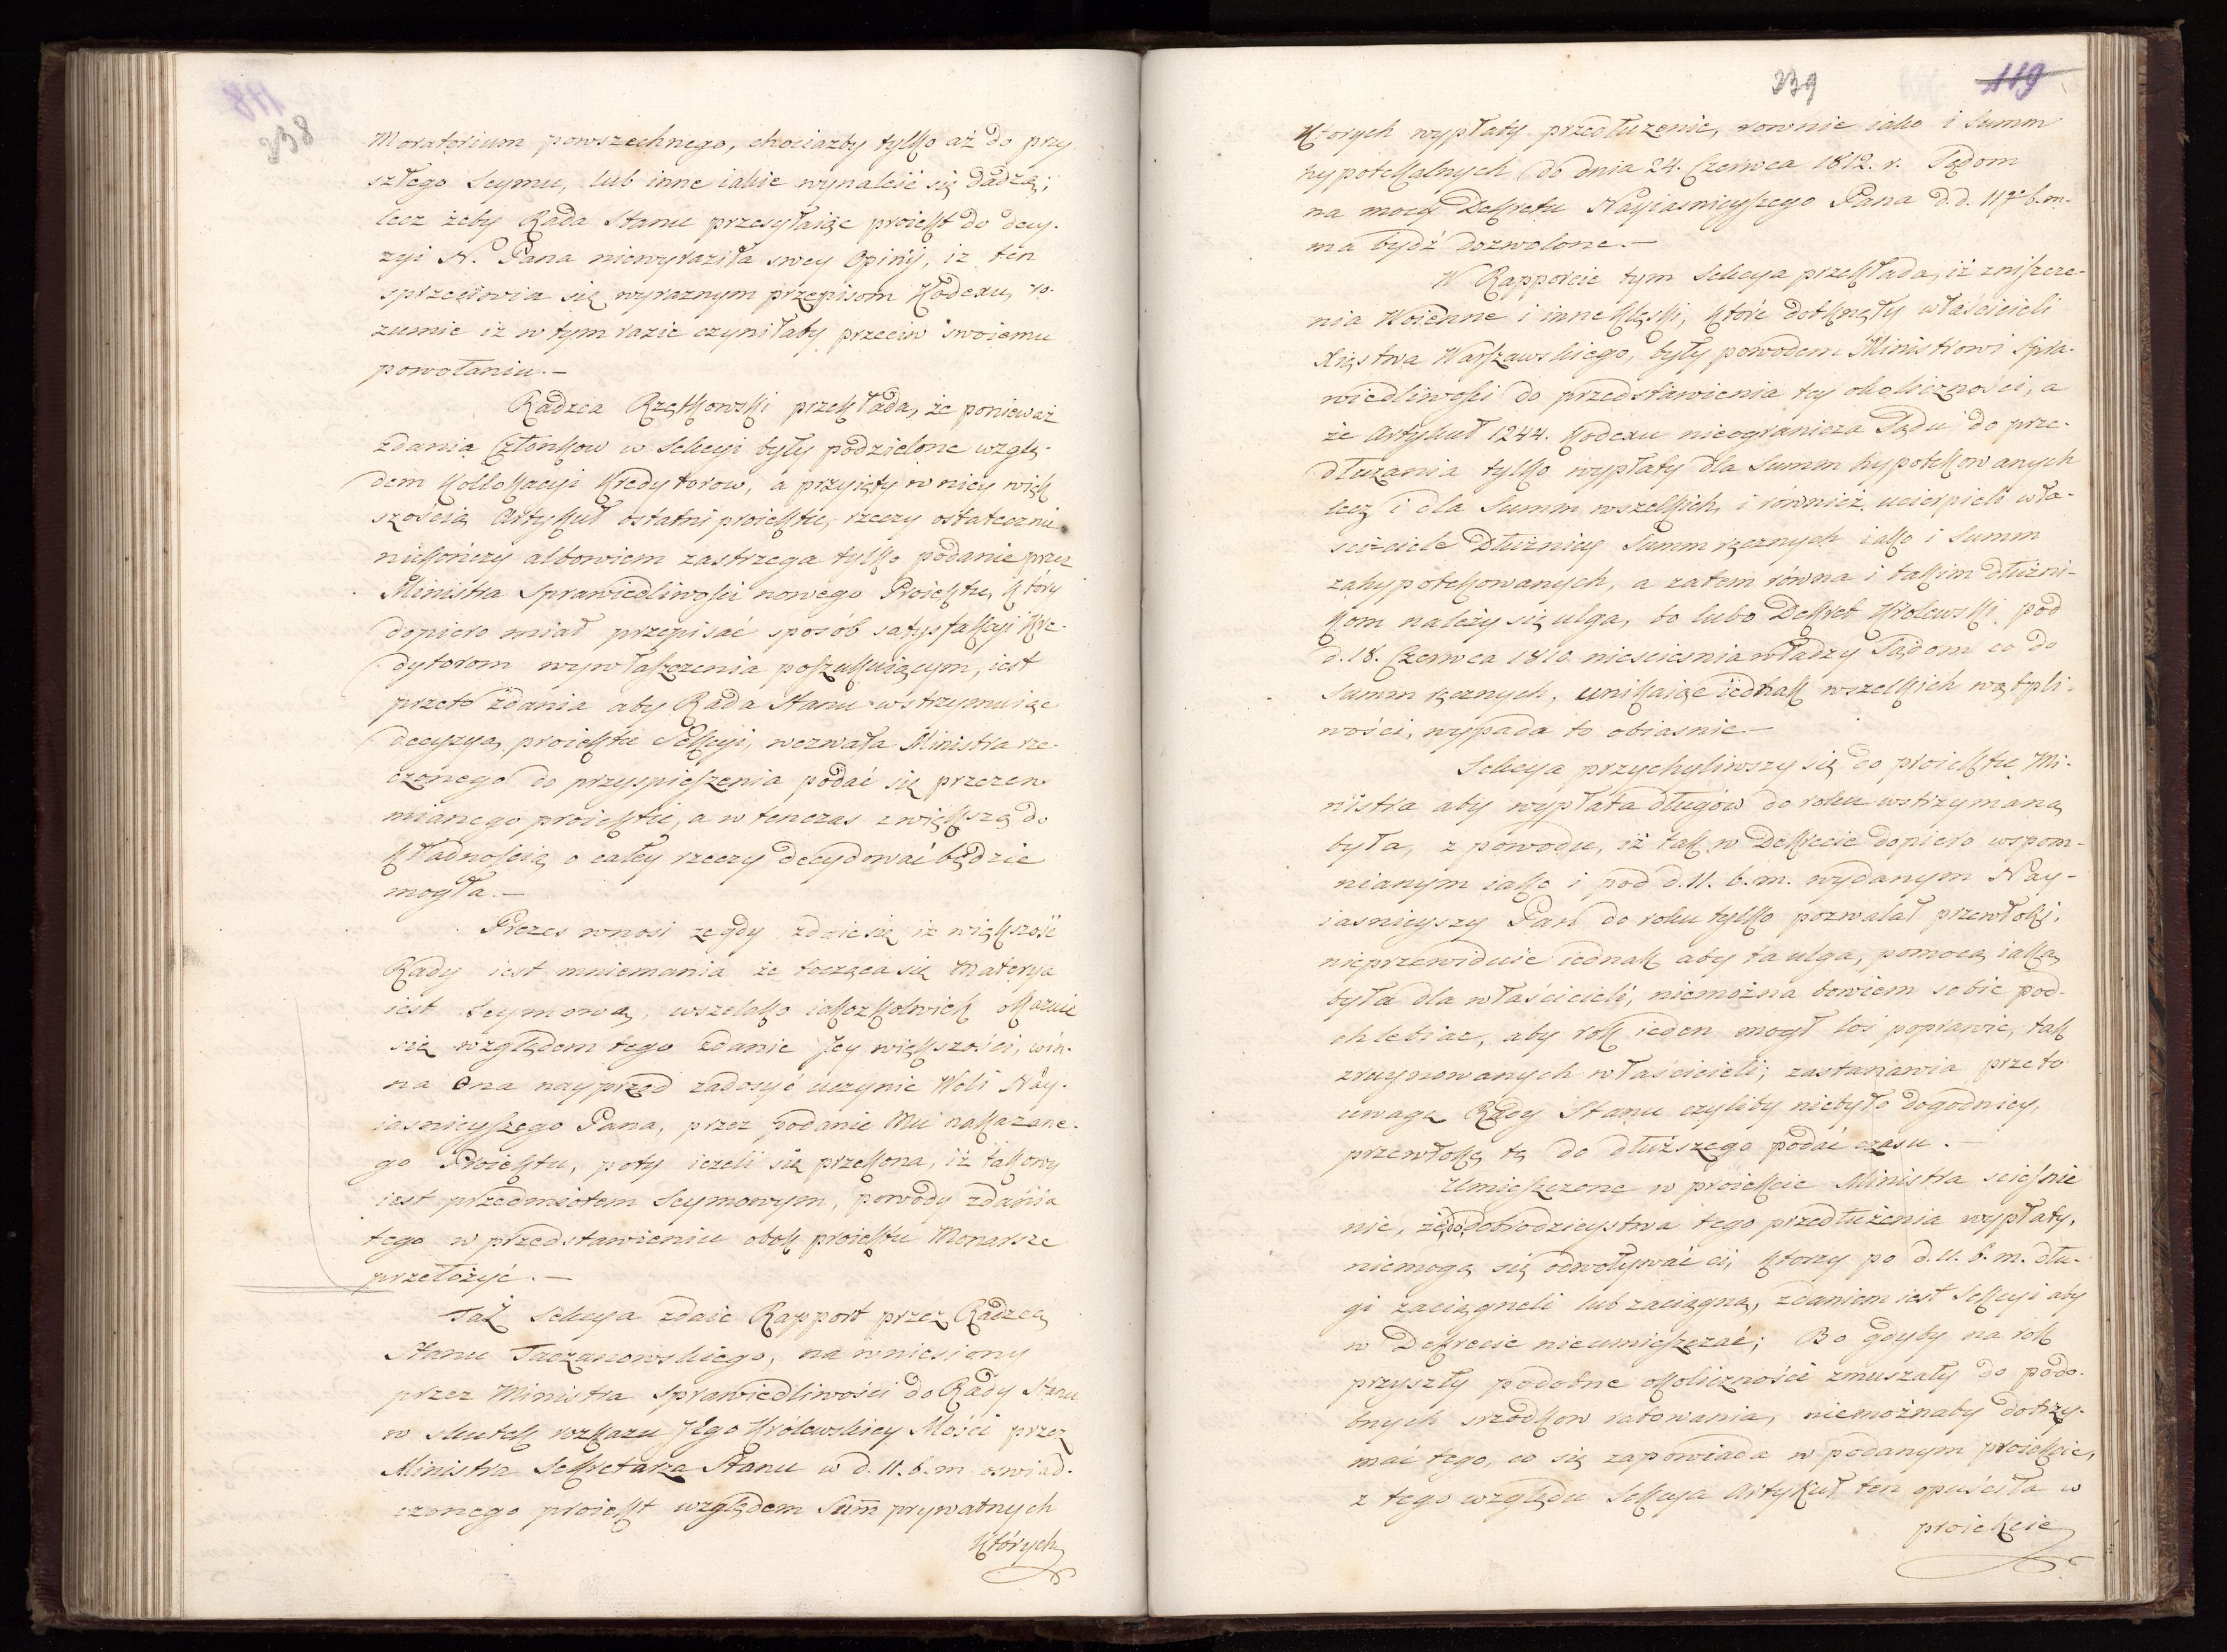 238
Moratorium powszechnego, chociażby tylko aż do przy
szłego Seymu, lub inne iakie wynaleść się dadzą;
lecz żeby Rada Stanu przesyłaiąc proiekt do decy-
zyi N. Pana niewyraziła swey Opinij, iż ten
sprzeciwia się wyraznym przepisom Kodexu, ro-
zumie iż w tym razie czyniłaby przeciw swoiemu
powołaniu.—
Radzca Rzętkowski przekłada, że ponieważ
zdania Członkow w Sekcyi były podzielone wzglę-
dem Kollokacyi Kredytorow, a przyięty w niey więk
szością Artykuł ostatni proiektu, rzeczy ostatecznie
niekończy albowiem zastrzega tylko podanie przez
Ministra Sprawiedliwości nowego Proiektu, który
dopiero miał przepisać sposób satysfakcyi Kre-
dytorom wywłaszczenia poszukuiącym, iest
przeto zdania aby Rada Stanu wstrzymuiąc
decyzyą proiektu Sekcyi, wezwała Ministra rze-
czonego do przyspieszenia podać się przezen-
mianego proiektu, a w tenczas z większą do
kładnością o całey rzeczy decydować będzie
mogła.—
Prezes wnosi że gdy zdaie się iż większość
Rady iest mniemania że tocząca się Materya
iest Seymową, wszelako iakożkolwiek okaże
się względem tego zdanie Jey większości, win-
na Ona nayprzód zadosyć uczynic Woli Nay-
iasnieyszego Pana, przez podanie Mu nakazane-
go Proiektu, poty ieżeli się przekona, iż takowy
iest przedmiotem Seymowym, powody zdania
tego w przedstawieniu obok proiektu Monarsze
przełożyć.—
Taż Sekcya zdaie Rapport przez Radzcę
Stanu Taczanowskiego, na wniesiony
przez Ministra Sprawiedliwości do Rady Stanu
w skutek rozkazu Jego Królewskiey Mości przez
Ministra Sekretarza Stanu w d. 11. b. m. oswiad-
czonego proiekt względem Sum̄ prywatnych
Których
239 119
Ktorych wypłaty przedłużenie, rownie iako i Summ
hypotekalnych do dnia 24. Czerwca 1812. r. Sądom
na mocy Dekretu Nayiasnieyszego Pana d. d. 11go b. m.
ma bydź dozwolone.—
W Rapporcie tym Sekcya przekłada, iż zniszcze-
nia Woienne i inne klęski, które dotknęły właścicieli
Xięstwa Warszawskiego, były powodem Ministrowi Spra-
wiedliwości do przedstawienia tey okoliczności, a
że Artykuł 1244. Kodexu nieogranicza Sądu do prze-
dłużania tylko wypłaty dla Summ hypotekowanych
lecz i dla Summ wszelkich, i również ucierpieli wła-
sciciele Dłużnicy Summ ręcznych iako i Summ
zahypotekowanych, a zatem równa i takim dłużni-
kom należy się ulga, to lubo Dekret Krolewski pod
d. 18. Czerwca 1810. niescieśnia władzy Sądom co do
Summ ręcznych, unikaiąc iednak wszelkich wątpli-
wości, wypada to obiasnic.—
Sekcya przychyliwszy się do proiektu Mi-
nistra aby wypłata długów do roku wstrzymaną
była, z powodu, iż tak w Dekrecie dopiero wspom-
nianym iako i pod d. 11. b. m. wydanym Nay-
iasnieyszy Pan do roku tylko pozwalał przewłoki,
nieprzewiduie iednak aby ta ulga, pomocą iaką
była dla właścicieli, niemożna bowiem sobie pod-
chlebiac, aby rok ieden mogł los poprawic, tak
zruynowanych właścicieli; zastanawia przeto
uwagę Rady Stanu czyliby niebyło dogodniey,
przewłokę tę do dłuższego podać czasu.—
Umieszczone w proiekcie Ministra scieśnie
nie, że do dobrodzieystwa tego przedłużenia wypłaty,
niemogą się odwoływać ci, którzy po d. 11. b. m. dłu-
gi zaciągneli lub zaciągną, zdaniem iest Sekcyi aby
w Dekrecie nieumieszczać; Bo gdyby na rok
przyszły podobne okoliczności zmuszały do podo-
bnych srzodkow ratowania, niemożnaby dotrzy-
mać tego, co się zapowiada w podanym proiekcie,
z tego względu Sekcya Artykuł ten opuściła w
proiekcie